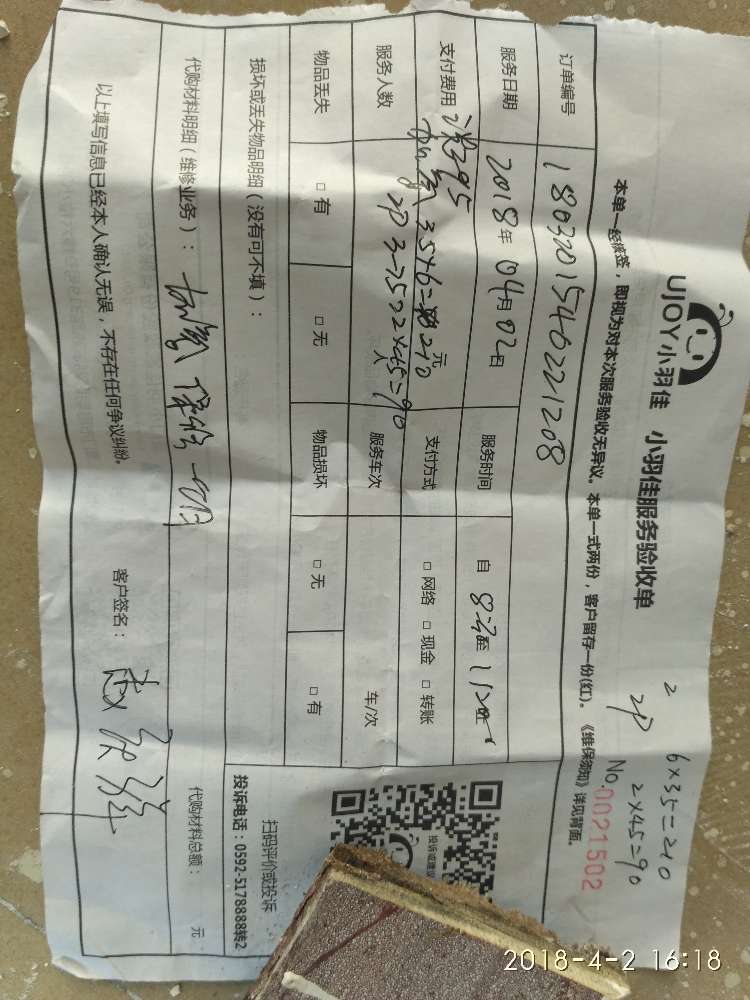 UJOY小羽佳 小羽佳服务验收单
本单一经核签，即视为对本次服务验收无异议。本单一式两份，客户留存一份(红)。《维保须知》详见背面。
6×35=210
2P 2×45=90
No.0021502
订单编号 180320154622208
服务日期 2018年04月02日 服务时间 自 8:30至
支付费用 元 支付方式 □ 网络 □ 现金 □ 转账
35×6=210
服务人数 人 服务车次 车/次
2×45=90
物品丢失 □ 有 □ 无 物品损坏 □ 无 □ 有
损坏或丢失物品明细（没有可不填）：
代购材料明细（维修业务）： 加氟 保修一个月
代购材料总额： 元
以上填写信息已经本人确认无误，不存在任何争议纠纷。 客户签名：
投诉或建议
扫码评价或投诉
投诉电话：0592-5178888转2
2018-4-2 16:18